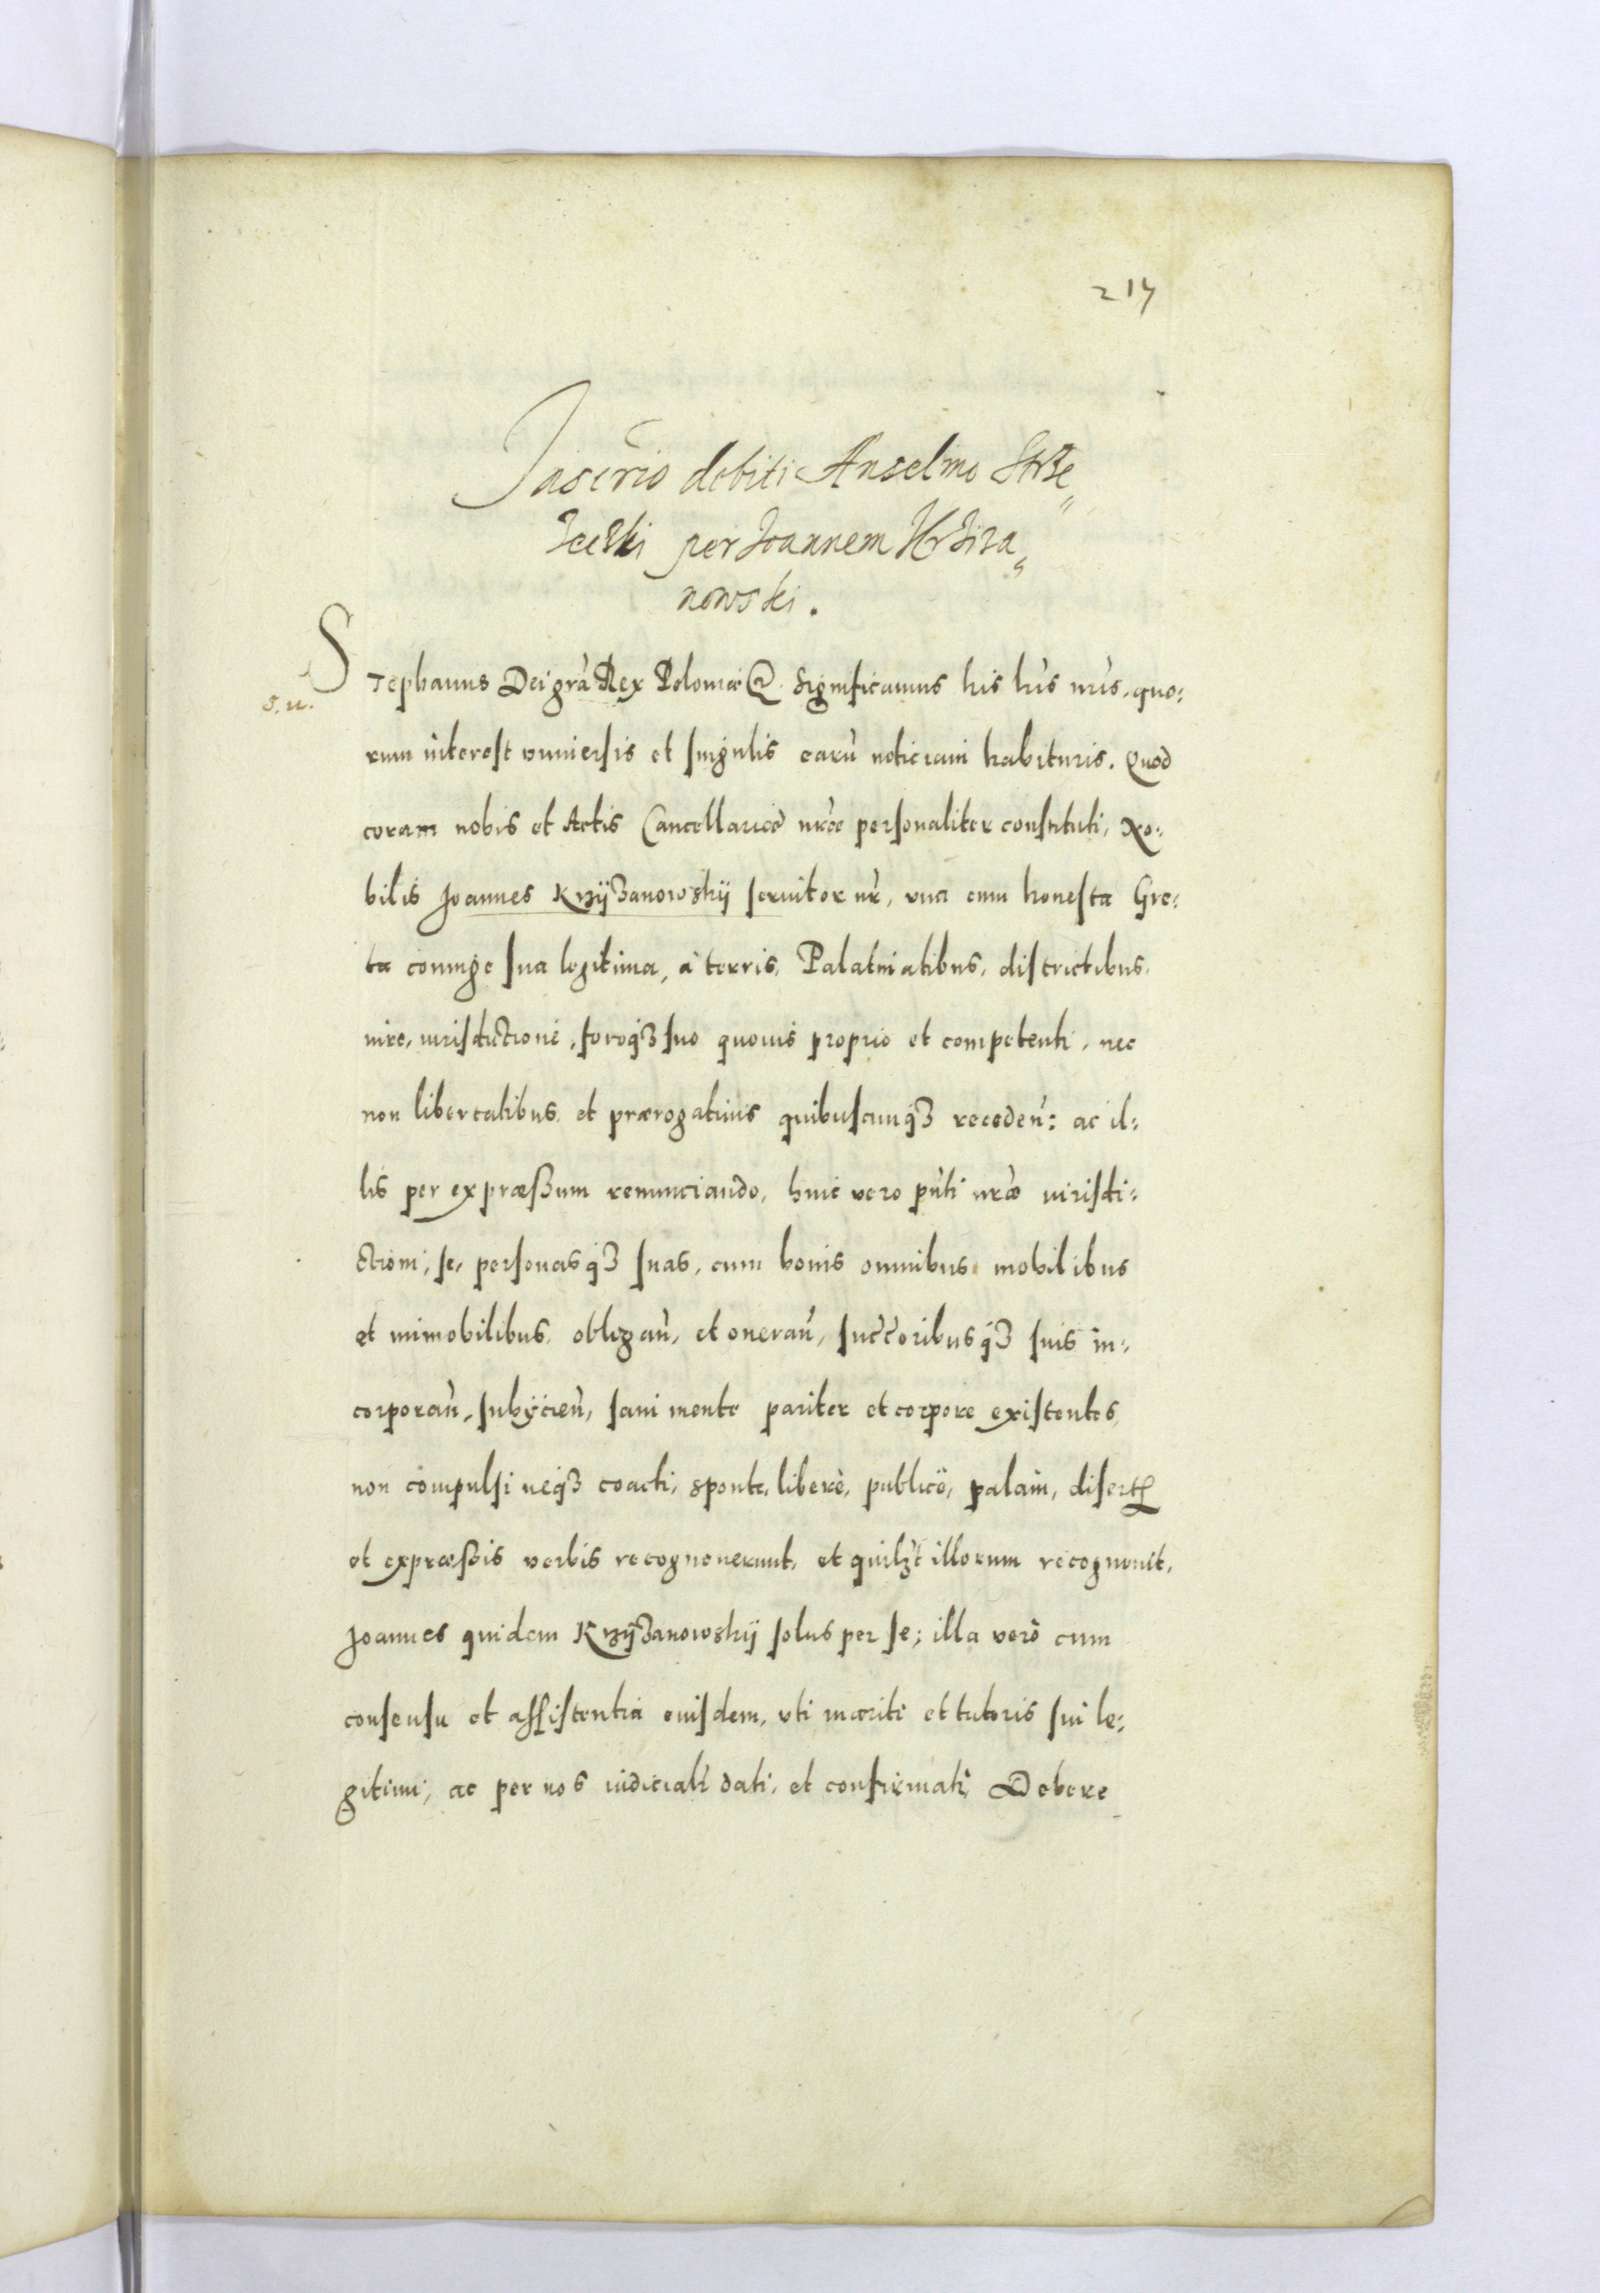 217
Inscrio debiti Anselmo Strze„
per Joannem Krziza„
nowski.
Stephanus Dei gra Rex Poloniæ &. Significamus his lris nris, quo:
s. u.
rum interest vniuersis et singulis earu noticiam habituris. Quod
coram nobis et Actis Cancellariæ nræ personaliter constituti, No:
bilis Joannes Krzÿżanowskÿ seruitor nr, vna cum honesta Gre:
ta coniuge sua legitima, à terris, Palatinatibus, districtibus,
iure, iurisdictione, foroq3 suo quouis proprio et competenti, nec
non libertatibus et prærogatiuis quibuscunq3 receden: ac il:
lis per expræssum renunciando, huic vero pnti nræ iurisdi:
ctioni, se, personasq3 suas, cum bonis omnibus mobilibus
et immobilibus, obligan, et oneran, succoribusq3 suis in:
corporan, subÿcien, sani mente pariter et corpore existentes,
non compulsi neq3 coacti, sponte, liberè, publicè, palàm, disertis
et expræssis verbis recognouerunt, et quilzt illorum recognouit,
Joannes quidem Krzÿżanowskÿ solus per se; illa verò cum
consensu et assistentia eiusdem, vti mariti et tutoris sui le:
gitimi, ac per nos iudicialr dati, et confirmati, Debere